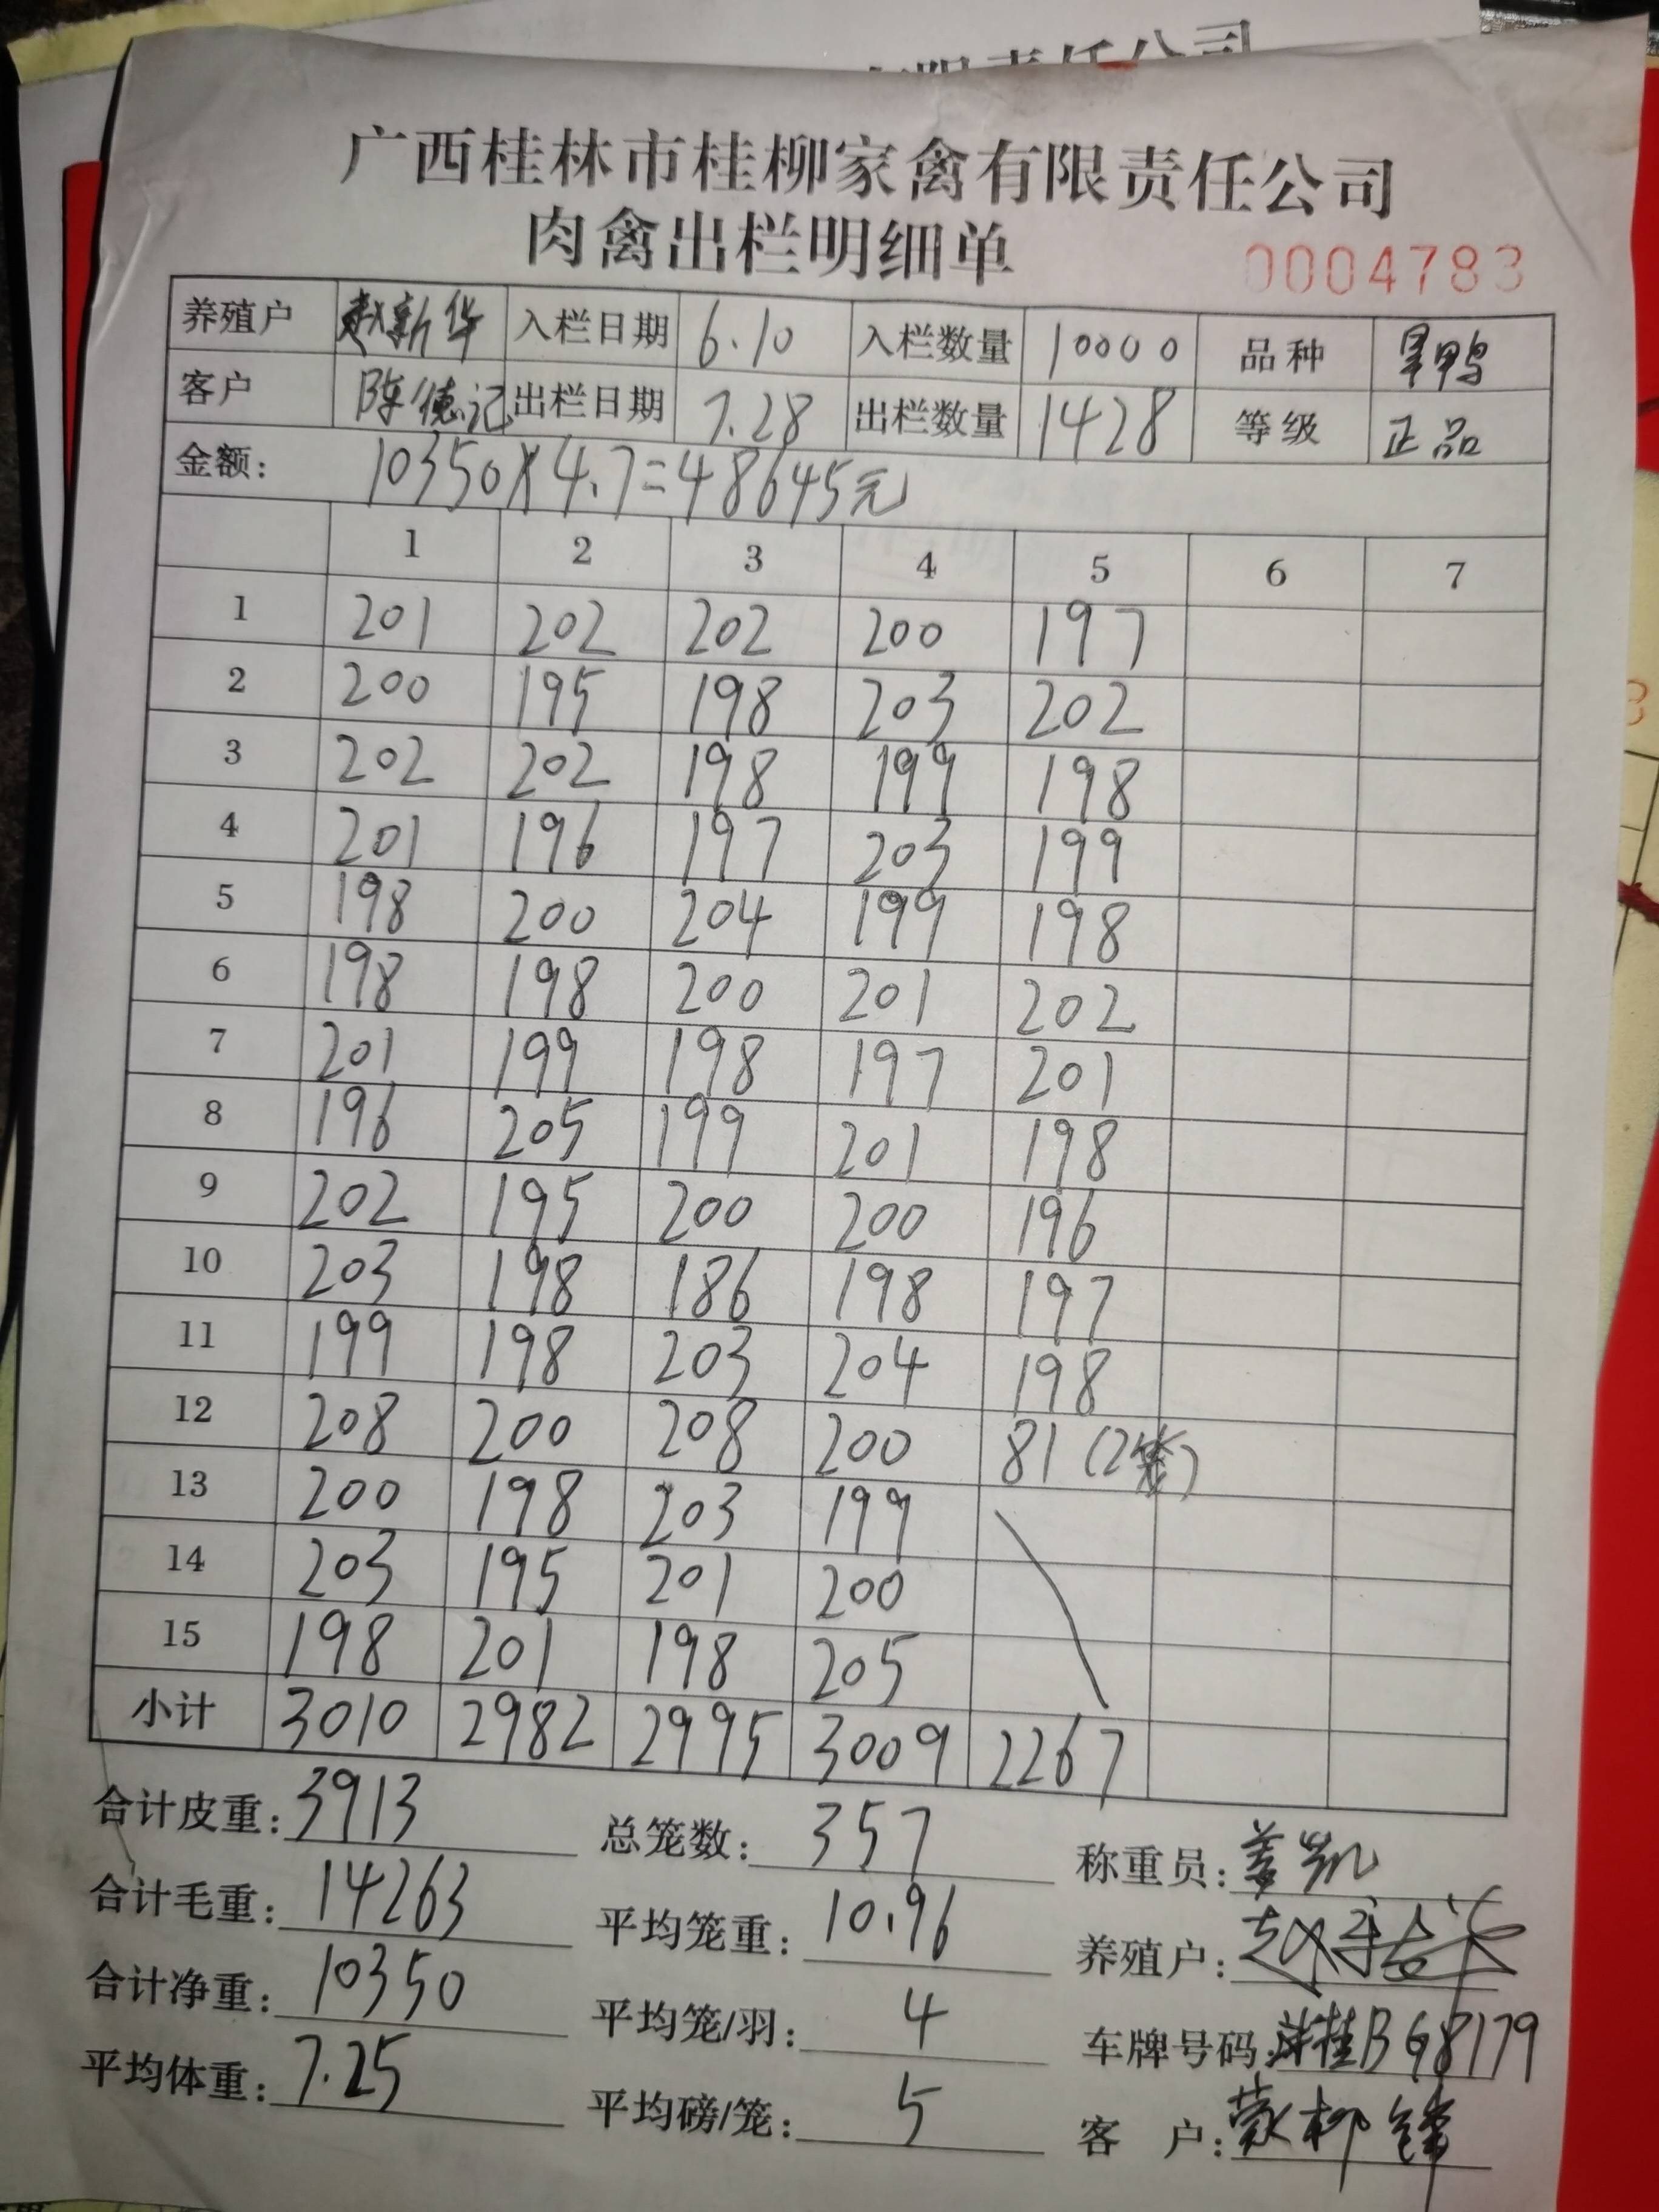 限责任公司
广西桂林市桂柳家禽有限责任公司
肉禽出栏明细单 0004783
养殖户 赵新华 入栏日期 6.10 入栏数量 10000 品种 旱鸭
客户 陈德记 出栏日期 7.28 出栏数量 1428 等级 正品
金额: 10350×4.7=48645元
1 2 3 4 5 6 7
1 201 202 202 200 197
2 200 195 198 203 202
3 202 202 198 199 198
4 201 196 197 203 199
5 198 200 204 199 198
6 198 198 200 201 202
7 201 199 198 197 201
8 196 205 199 201 198
9 202 195 200 200 196
10 203 198 186 198 197
11 199 198 203 204 198
12 208 200 208 200 81(2笼)
13 200 198 203 199
14 203 195 201 200
15 198 201 198 205
小计 3010 2982 2995 3009 2267
合计皮重: 3913 总笼数: 357 称重员: 姜凯
合计毛重: 14263 平均笼重: 10.96 养殖户:
合计净重: 10350 平均笼/羽: 4 车牌号码: 桂B68179
平均体重: 7.25 平均磅/笼: 5 客 户: 柳锋